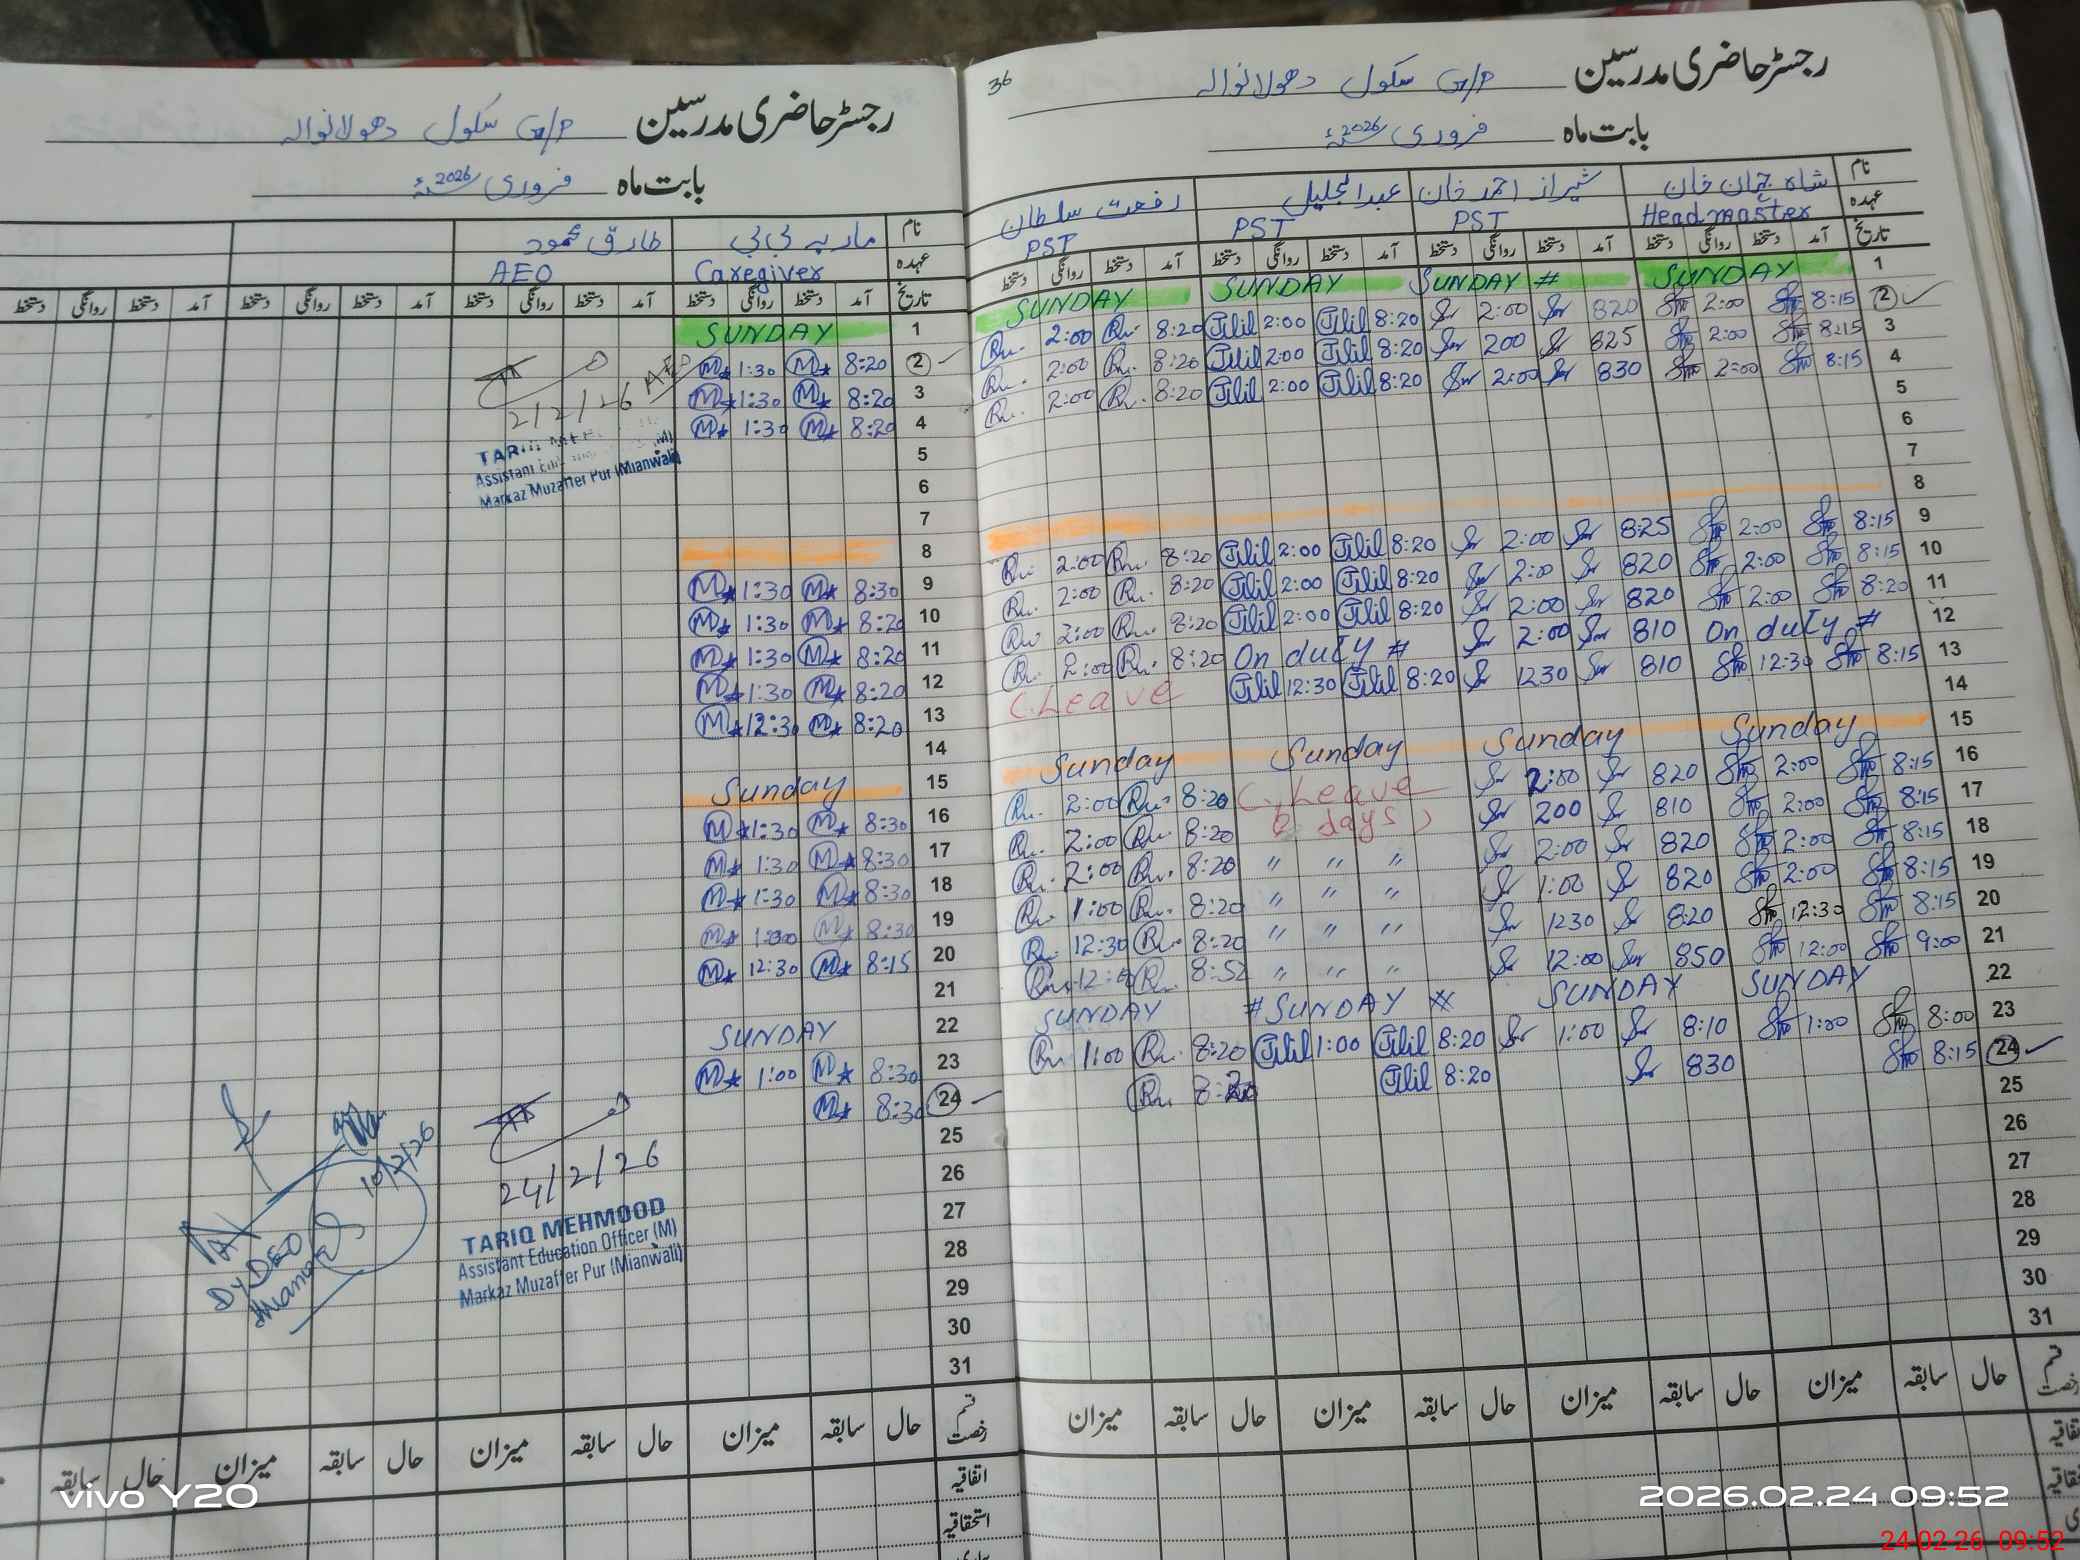 36
رجسٹر حاضری مدرسین G/P سکول دھولانوالہ
بابت ماہ فروری 2026ء
نام شاہ جہان خان شیراز احمد خان عبدالجلیل رفعت سلطان
عہدہ Headmaster PST PST PST
تاریخ آمد دستخط روانگی دستخط آمد دستخط روانگی دستخط آمد دستخط روانگی دستخط آمد دستخط روانگی دستخط
1 SUNDAY SUNDAY # SUNDAY SUNDAY
2 8:15 2:00 820 2:00 8:20 Jlil 2:00 Jlil 8:20 Ru. 2:00 Ru.
3 8:15 2:00 825 200 8:20 Jlil 2:00 Jlil 8:20 Ru. 2:00 Ru.
4 8:15 2:00 830 2:00 8:20 Jlil 2:00 Jlil 8:20 Ru. 2:00 Ru.
5
6
7
8
9 8:15 2:00 8:25 2:00 8:20 Jlil 2:00 Jlil 8:20 Ru. 2:00 Ru.
10 8:15 2:00 820 2:00 8:20 Jlil 2:00 Jlil 8:20 Ru. 2:00 Ru.
11 8:20 2:00 820 2:00 8:20 Jlil 2:00 Jlil 8:20 Ru. 2:00 Ru.
12 On duty # 810 2:00 On duty # 8:20 Ru. 2:00 Ru.
13 8:15 12:30 810 1230 8:20 Jlil 12:30 Jlil C.Leave
14
15 Sunday Sunday Sunday Sunday
16 8:15 2:00 820 2:00 C.Leave 8:20 Ru. 2:00 Ru.
17 8:15 2:00 810 200 6 days) 8:20 Ru. 2:00 Ru.
18 8:15 2:00 820 2:00 " " " 8:20 Ru. 2:00 Ru.
19 8:15 2:00 820 1:00 " " " 8:20 Ru. 1:00 Ru.
20 8:15 12:30 8:20 1230 " " " 8:20 Ru. 12:30 Ru.
21 9:00 12:00 850 12:00 " " " 8:52 Ru. 12:00 Ru.
22 SUNDAY SUNDAY # SUNDAY # SUNDAY
23 8:00 1:00 8:10 1:00 8:20 Jlil 1:00 Jlil 8:20 Ru. 1:00 Ru.
24 8:15 830 8:20 Jlil 8:20 Ru.
25
26
27
28
29
30
31
قسم رخصت حال سابقہ میزان حال سابقہ میزان حال سابقہ میزان حال سابقہ میزان
رجسٹر حاضری مدرسین G/P سکول دھولانوالہ
بابت ماہ فروری 2026ء
نام ماریہ بی بی طارق محمود
عہدہ Caregiver AEO
تاریخ آمد دستخط روانگی دستخط آمد دستخط روانگی دستخط آمد دستخط روانگی دستخط آمد دستخط
1 SUNDAY
2 8:20 M 1:30 M
3 8:20 M 1:30 M
4 8:20 M 1:30 M
5
6
7
8
9 8:30 M 1:30 M
10 8:20 M 1:30 M
11 8:20 M 1:30 M
12 8:20 M 1:30 M
13 8:20 M 12:30 M
14
15 Sunday
16 8:30 M 1:30 M
17 8:30 M 1:30 M
18 8:30 M 1:30 M
19 8:30 M 1:00 M
20 8:15 M 12:30 M
21
22 SUNDAY
23 8:30 M 1:00 M
24 8:30 M
25
26
27
28
29
30
31
2/2/26 AEO
Assistant
Markaz Muzaffer Pur (Mianwali)
10/2/26
Dy DEO
24/2/26
TARIQ MEHMOOD
Assistant Education Officer (M)
Markaz Muzaffer Pur (Mianwali)
قسم رخصت حال سابقہ میزان حال سابقہ میزان حال سابقہ میزان حال سابقہ
اتفاقیہ
استحقاقیہ
vivo Y20
2026.02.24 09:52
24-02-26 09:52